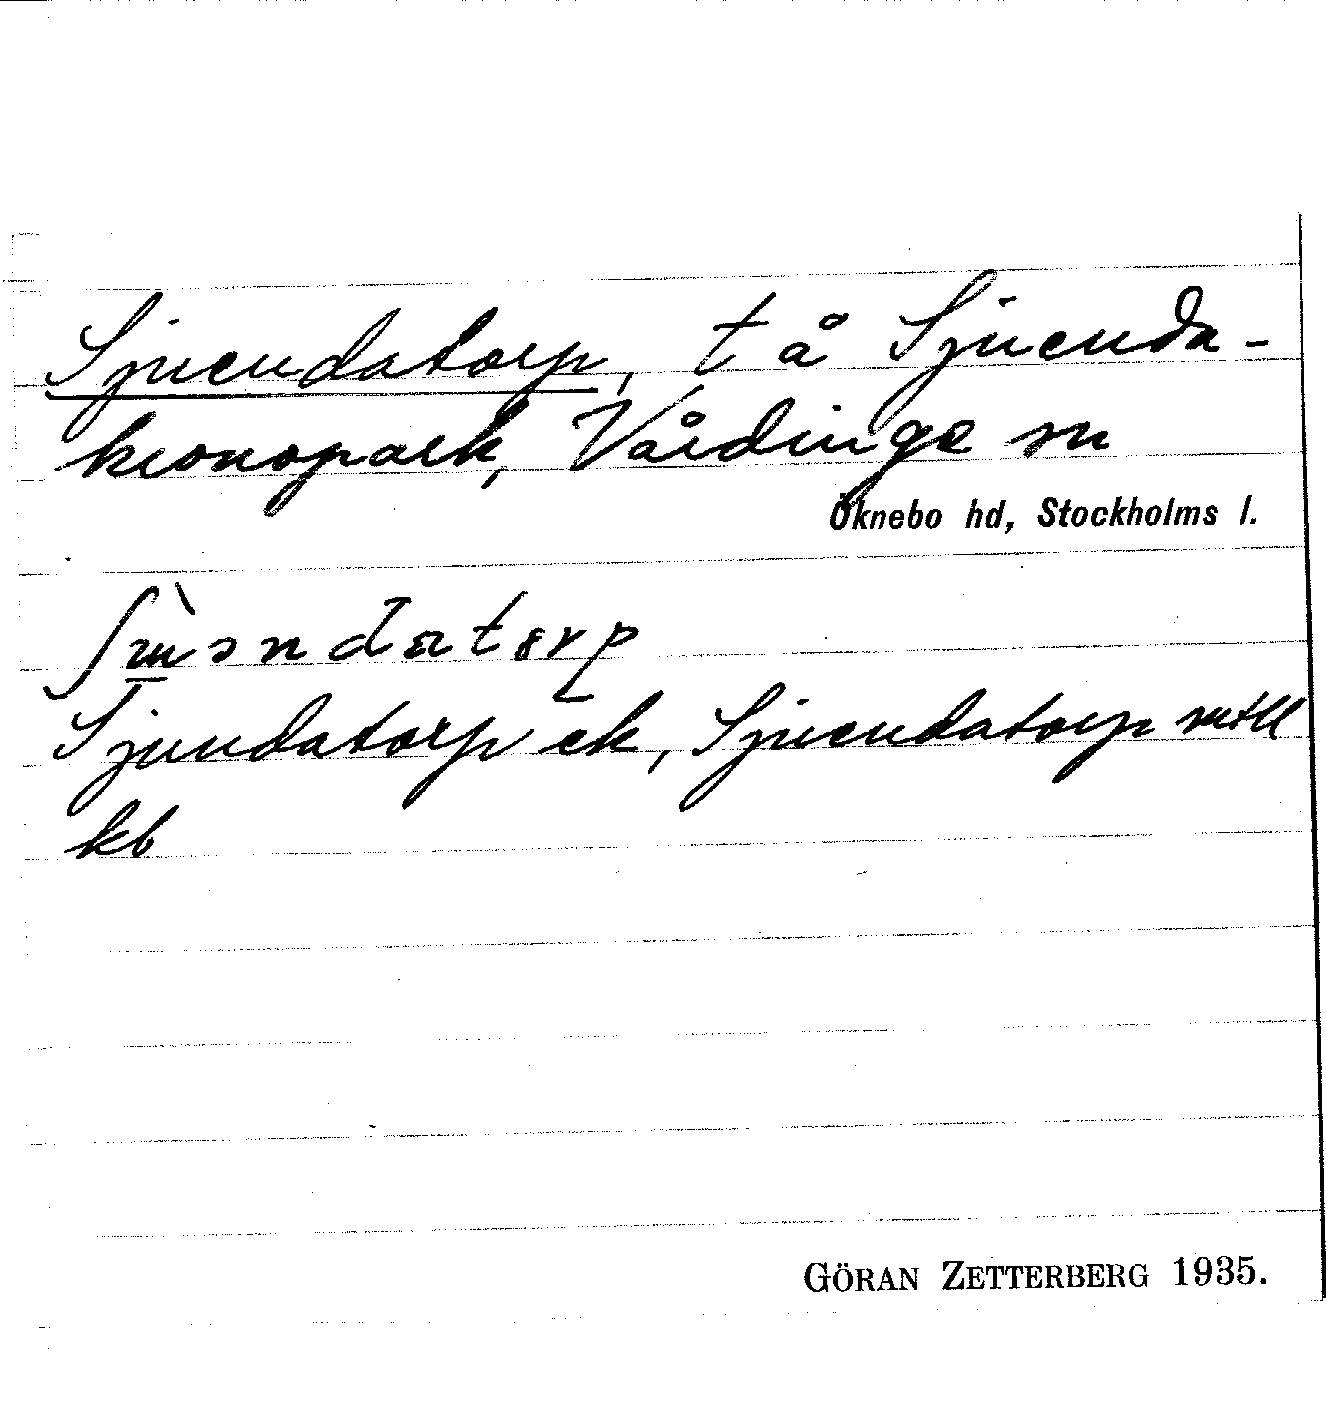 Sjuendatorp, t å Sjuenda-
kronopark, Vårdinge sn
Öknebo hd, Stockholms l.
Sjundatorp ek, Sjuendatorp
kb
GÖRAN ZETTERBERG 1935.